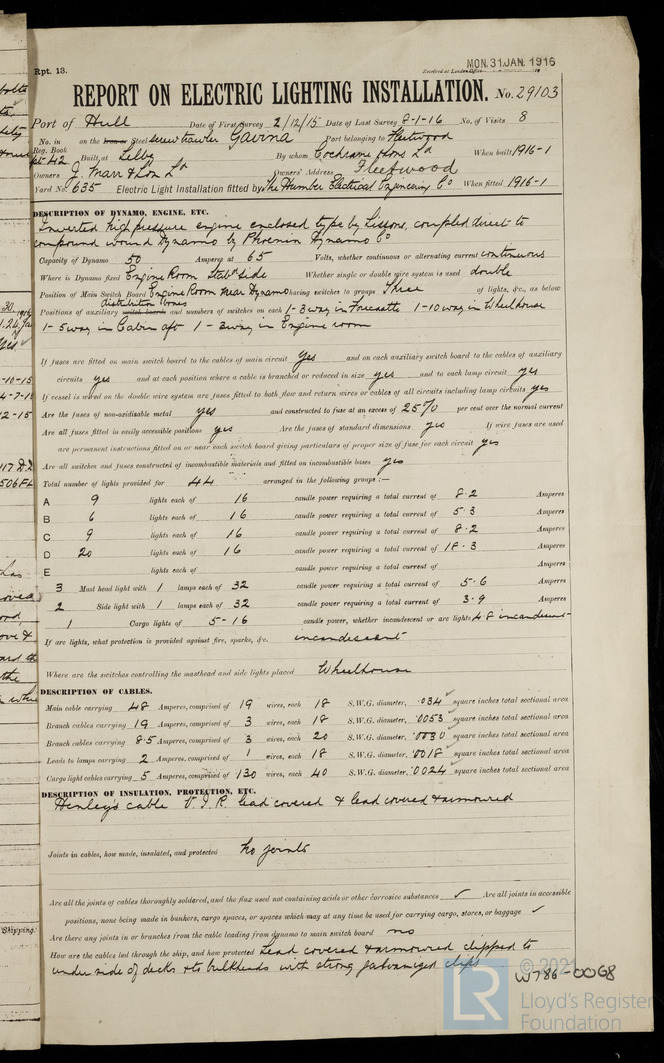 Rpt. 13.
Received at London Office
MON. 31 JAN. 1916
REPORT ON ELECTRIC LIGHTING INSTALLATION. No. 29103
Port of Hull Date of First Survey 2/12/15 Date of Last Survey 8-1-16 No. of Visits 8
No. in Reg. Book on the Iron or Steel screw trawler Gavina Port belonging to Fleetwood
Built at Selby By whom Cochrane & Sons Ld When built 1916-1
Owners J. Marr & Son Ld Owners' Address Fleetwood
Yard No. 635 Electric Light Installation fitted by The Humber Electrical Engineering Co When fitted 1916-1
DESCRIPTION OF DYNAMO, ENGINE, ETC.
Inverted high pressure engine enclosed type by Sissons, coupled direct to
compound wound Dynamo by Phoenix Dynamo Co
Capacity of Dynamo 50 Amperes at 65 Volts, whether continuous or alternating current continuous
Where is Dynamo fixed Engine Room Starbd side Whether single or double wire system is used double
Position of Main Switch Board Engine Room near Dynamo having switches to groups Three of lights, &c., as below
distribution boxes
Positions of auxiliary switch boards and numbers of switches on each 1-3way in Forecastle 1-10way in Wheelhouse
1-5way in Cabin aft 1-3way in Engine room
If fuses are fitted on main switch board to the cables of main circuit yes and on each auxiliary switch board to the cables of auxiliary
circuits yes and at each position where a cable is branched or reduced in size yes and to each lamp circuit yes
If vessel is wired on the double wire system are fuses fitted to both flow and return wires or cables of all circuits including lamp circuits yes
Are the fuses of non-oxidizable metal yes and constructed to fuse at an excess of 25% per cent over the normal current
Are all fuses fitted in easily accessible positions yes Are the fuses of standard dimensions yes If wire fuses are used
are permanent instructions fitted on or near each switch board giving particulars of proper size of fuse for each circuit yes
Are all switches and fuses constructed of incombustible materials and fitted on incombustible bases yes
Total number of lights provided for 44 arranged in the following groups :—
A 9 lights each of 16 candle power requiring a total current of 8.2 Amperes
B 6 lights each of 16 candle power requiring a total current of 5.3 Amperes
C 9 lights each of 16 candle power requiring a total current of 8.2 Amperes
D 20 lights each of 16 candle power requiring a total current of 18.3 Amperes
E lights each of candle power requiring a total current of Amperes
3 Mast head light with 1 lamps each of 32 candle power requiring a total current of 5.6 Amperes
2 Side light with 1 lamps each of 32 candle power requiring a total current of 3.9 Amperes
1 Cargo lights of 5-16 candle power, whether incandescent or arc lights 4.8 incandescent
If arc lights, what protection is provided against fire, sparks, &c. incandescent
Where are the switches controlling the masthead and side lights placed Wheelhouse
DESCRIPTION OF CABLES.
Main cable carrying 48 Amperes, comprised of 19 wires, each 18 S.W.G. diameter, .034 square inches total sectional area
Branch cables carrying 19 Amperes, comprised of 3 wires, each 18 S.W.G. diameter, .0053 square inches total sectional area
Branch cables carrying 8.5 Amperes, comprised of 3 wires, each 20 S.W.G. diameter, .0030 square inches total sectional area
Leads to lamps carrying 2 Amperes, comprised of 1 wires, each 18 S.W.G. diameter, .0018 square inches total sectional area
Cargo light cables carrying 5 Amperes, comprised of 130 wires, each 40 S.W.G. diameter, .0024 square inches total sectional area
DESCRIPTION OF INSULATION, PROTECTION, ETC.
Henley's cable V.I.R. lead covered & lead covered & armoured
Joints in cables, how made, insulated, and protected no joints
Are all the joints of cables thoroughly soldered, and the flux used not containing acids or other corrosive substances ✓ Are all joints in accessible
positions, none being made in bunkers, cargo spaces, or spaces which may at any time be used for carrying cargo, stores, or baggage ✓
Are there any joints in or branches from the cable leading from dynamo to main switch board no
How are the cables led through the ship, and how protected Lead covered & armoured clipped to
under side of decks & to bulkheads with strong galvanized clips
© 2021
W786-0068
LR
Lloyd's Register
Foundation